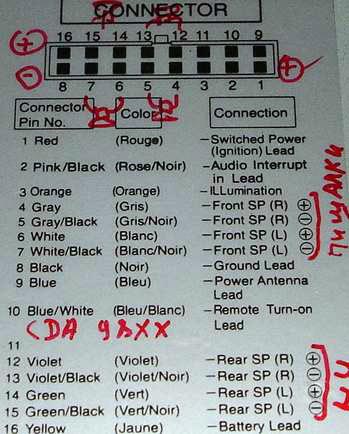 CONNECTOR
16 15 14 13 12 11 10 9
8 7 6 5 4 3 2 1
Connector Pin No. Color Connection
1 Red (Rouge) –Switched Power (Ignition) Lead
2 Pink/Black (Rose/Noir) –Audio Interrupt in Lead
3 Orange (Orange) –ILLumination
4 Gray (Gris) –Front SP (R) ⊕
5 Gray/Black (Gris/Noir) –Front SP (R) ⊖
6 White (Blanc) –Front SP (L) ⊕
7 White/Black (Blanc/Noir) –Front SP (L) ⊖
8 Black (Noir) –Ground Lead
9 Blue (Bleu) –Power Antenna Lead
10 Blue/White (Bleu/Blanc) –Remote Turn-on Lead
CDA 98XX
11
12 Violet (Violet) –Rear SP (R) ⊕
13 Violet/Black (Violet/Noir) –Rear SP (R) ⊖
14 Green (Vert) –Rear SP (L) ⊕
15 Green/Black (Vert/Noir) –Rear SP (L) ⊖
16 Yellow (Jaune) –Battery Lead
пищАлки